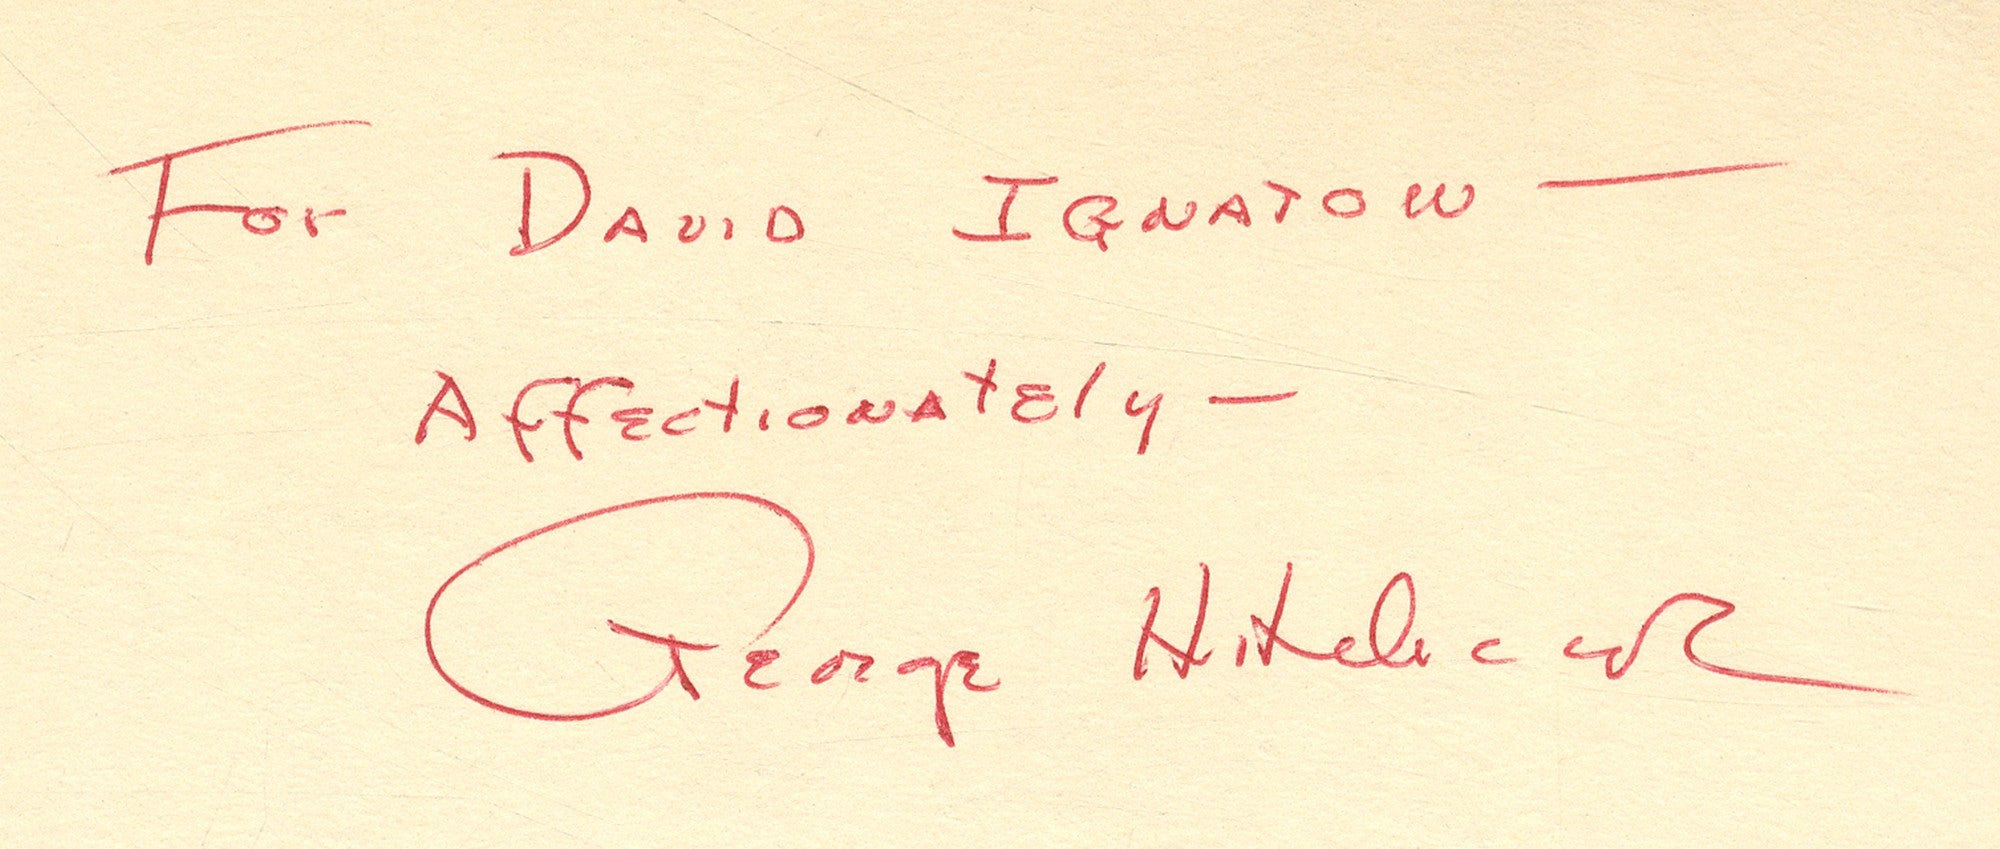 For David Ignatow —
Affectionately —
George Hitchcock